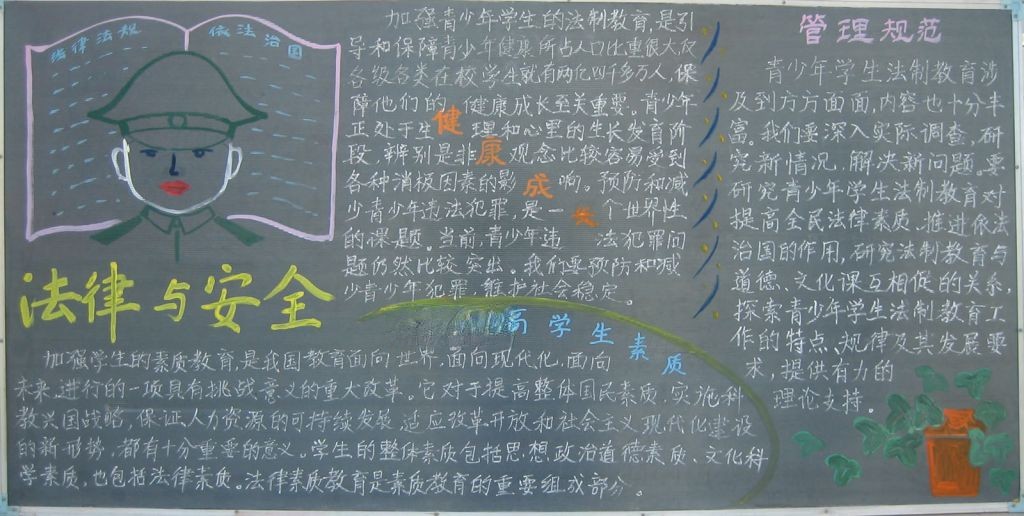 法律法规
依法治国
法律与安全
加强青少年学生的法制教育,是引
导和保障青少年健康所占人口比重很大仅
各级各类在校学生就有两亿四千多万人,保
障他们的健康成长至关重要。青少年
正处于生理和心里的生长发育阶
段,辨别是非观念比较容易受到
各种消极因素的影响。预防和减
少青少年违法犯罪,是一个世界性
的课题。当前,青少年违法犯罪问
题仍然比较突出。我们要预防和减
少青少年犯罪,维护社会稳定。
健康成长
高学生素质
加强学生的素质教育,是我国教育面向世界,面向现代化,面向
未来,进行的一项具有挑战意义的重大改革。它对于提高整体国民素质,实施科
教兴国战略,保证人力资源的可持续发展,适应改革开放和社会主义现代化建设
的新形势,都有十分重要的意义。学生的整体素质包括思想政治道德素质、文化科
学素质,也包括法律素质。法律素质教育是素质教育的重要组成部分。
管理规范
青少年学生法制教育涉
及到方方面面,内容也十分丰
富。我们要深入实际调查,研
究新情况,解决新问题。要
研究青少年学生法制教育对
提高全民法律素质、推进依法
治国的作用,研究法制教育与
道德、文化课互相促的关系,
探索青少年学生法制教育工
作的特点、规律及其发展要
求,提供有力的
理论支持。